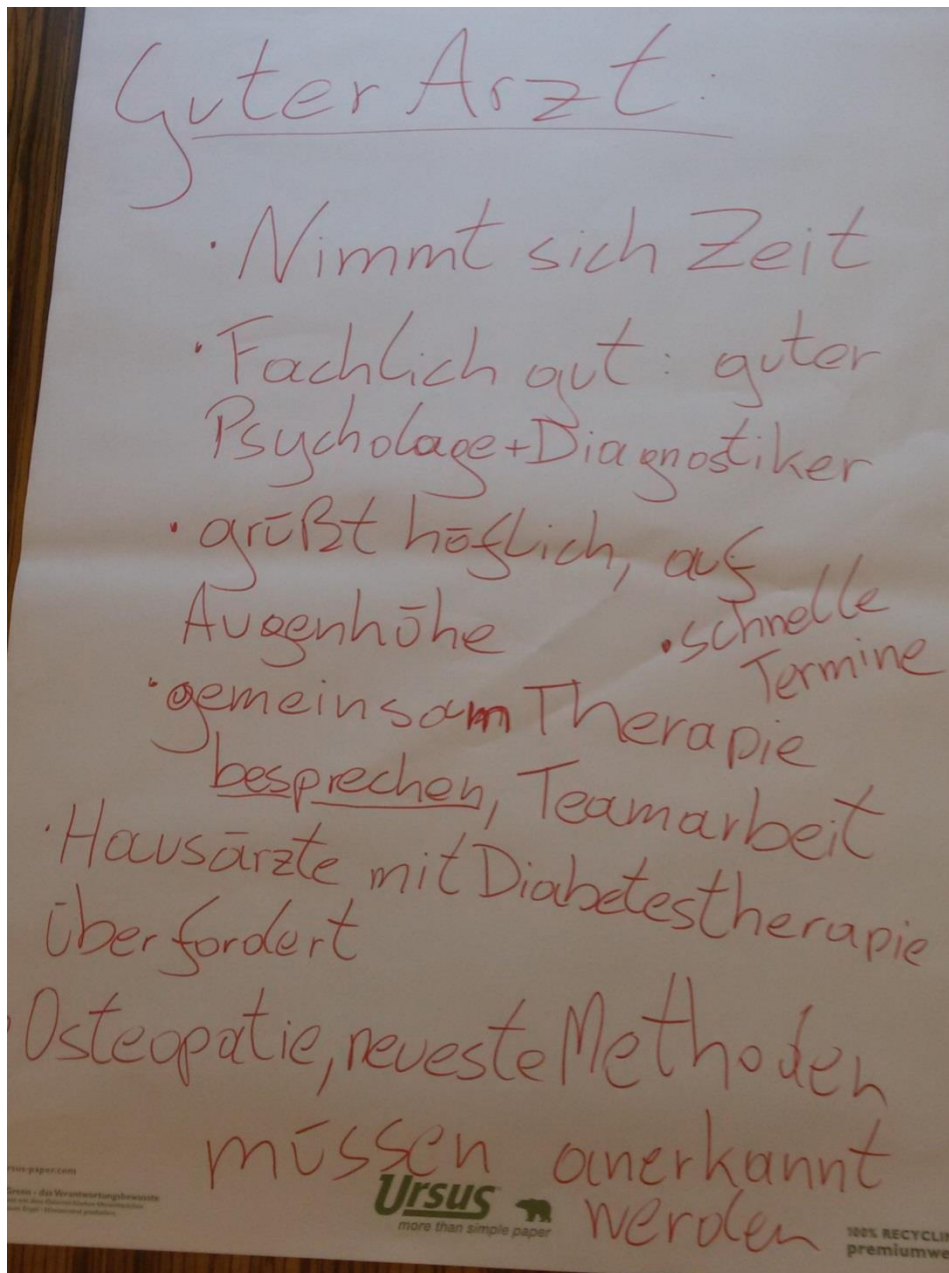 Guter Arzt:
· Nimmt sich Zeit
· Fachlich gut: guter
Psychologe+Diagnostiker
· grüßt höflich, auf
Augenhöhe
· schnelle
Termine
· gemeinsam Therapie
besprechen, Teamarbeit
· Hausärzte mit Diabetestherapie
überfordert
· Osteopatie, neueste Methoden
müssen anerkannt
werden
Ursus
more than simple paper
100% RECYCLI
premiumwe
rsus-paper.com